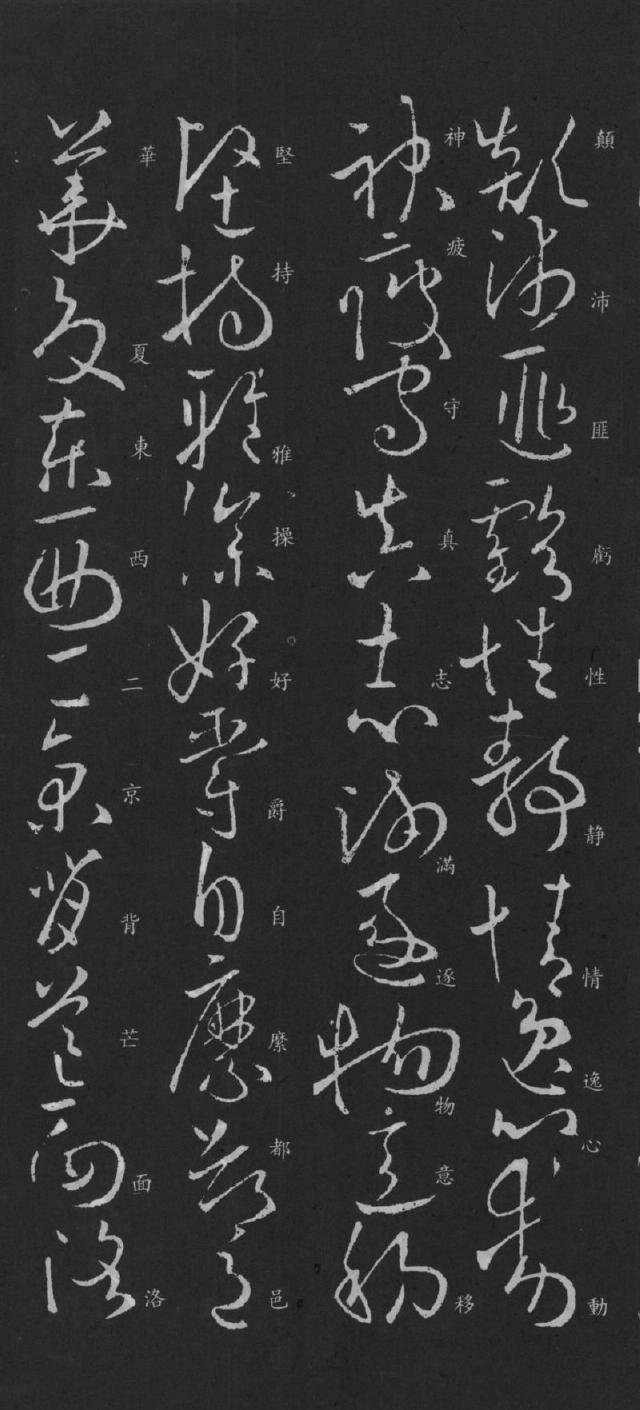 顛沛匪虧性静情逸心動
神疲守真志滿逐物意移
堅持雅操好爵自縻都邑
華夏東西二京背芒面洛